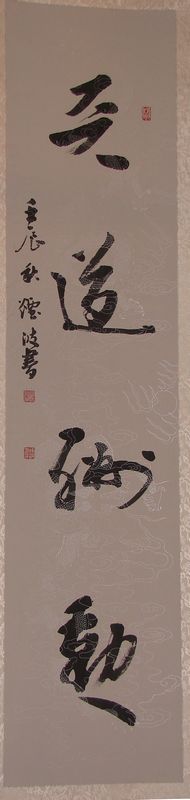 天道酬勤
壬辰秋 波書